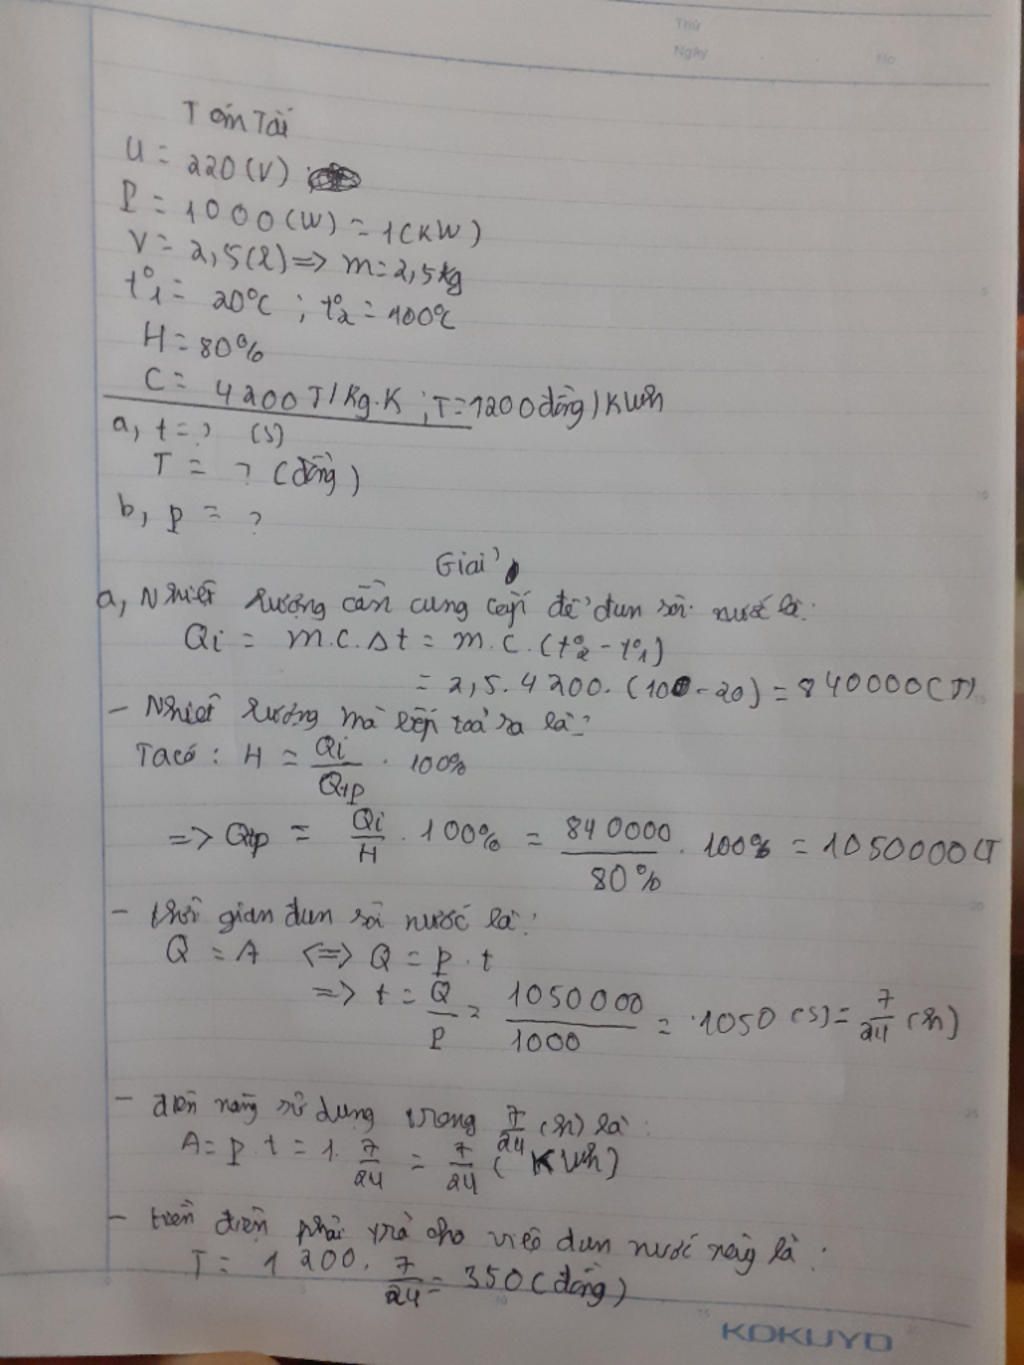 Thứ
Ngày No
Tóm Tắt
U = 220 (V)
P = 1000 (W) = 1 (KW)
V = 2,5 (l) => m = 2,5 kg
t°1 = 20°C ; t°2 = 100°C
H = 80%
C = 4200 J/kg.K ; T = 1200 đồng/KWh
a, t = ? (s)
T = ? (đồng)
b, P = ?
Giải
a, Nhiệt lượng cần cung cấp để đun sôi nước là:
Qi = m.c.Δt = m.c.(t°2 - t°1)
= 2,5.4200.(100-20) = 840000 (J)
- Nhiệt lượng mà bếp toả ra là:
Ta có: H = Qi/Qtp . 100%
=> Qtp = Qi/H . 100% = 840000/80% . 100% = 1050000 (J
- thời gian đun sôi nước là:
Q = A <=> Q = P.t
=> t = Q/P = 1050000/1000 = 1050 (s) = 7/24 (h)
- điện năng sử dụng trong 7/24 (h) là:
A = P.t = 1. 7/24 = 7/24 (KWh)
- tiền điện phải trả cho việc đun nước này là:
T = 1200. 7/24 = 350 (đồng)
KOKUYO